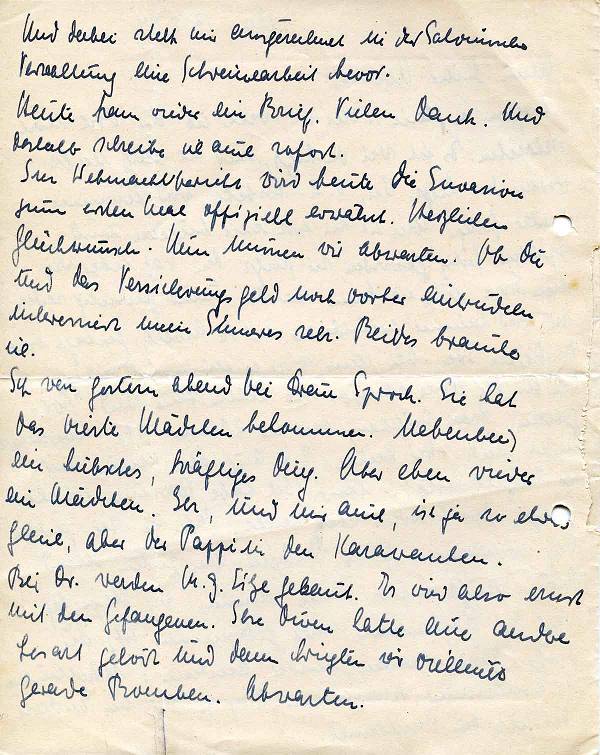 Und dabei steht mir ausgerechnet in der
Verwaltung eine Schweinearbeit bevor.
Heute kam wieder ein Brief. Vielen Dank. Und
deshalb schreibe ich auch sofort.
Im Wehrmachtbericht wird heute die Invasion
zum ersten Mal offiziell erwähnt. Herzlichen
Glückwunsch. Nun können wir abwarten. Ob Du
und das Versicherungsgeld noch vorher eintrudeln
interessiert mein Inneres sehr. Beides brauche
ich.
Ich war gestern abend bei Frau Sproch. Sie hat
das vierte Mädchen bekommen. Nebenbei
ein hübsches, kräftiges Ding. Aber eben wieder
ein Mädchen. Ihr, und mir auch, ist ja so etwas
gleich, aber der Pappi in den Karawanken.
Bei Dr. werden M.G. gebaut. Es wird also ernst
mit den Gefangenen. hatte eine andere
Lesart gehört und dann kriegten wir vielleicht
gerade Bomben. Abwarten.